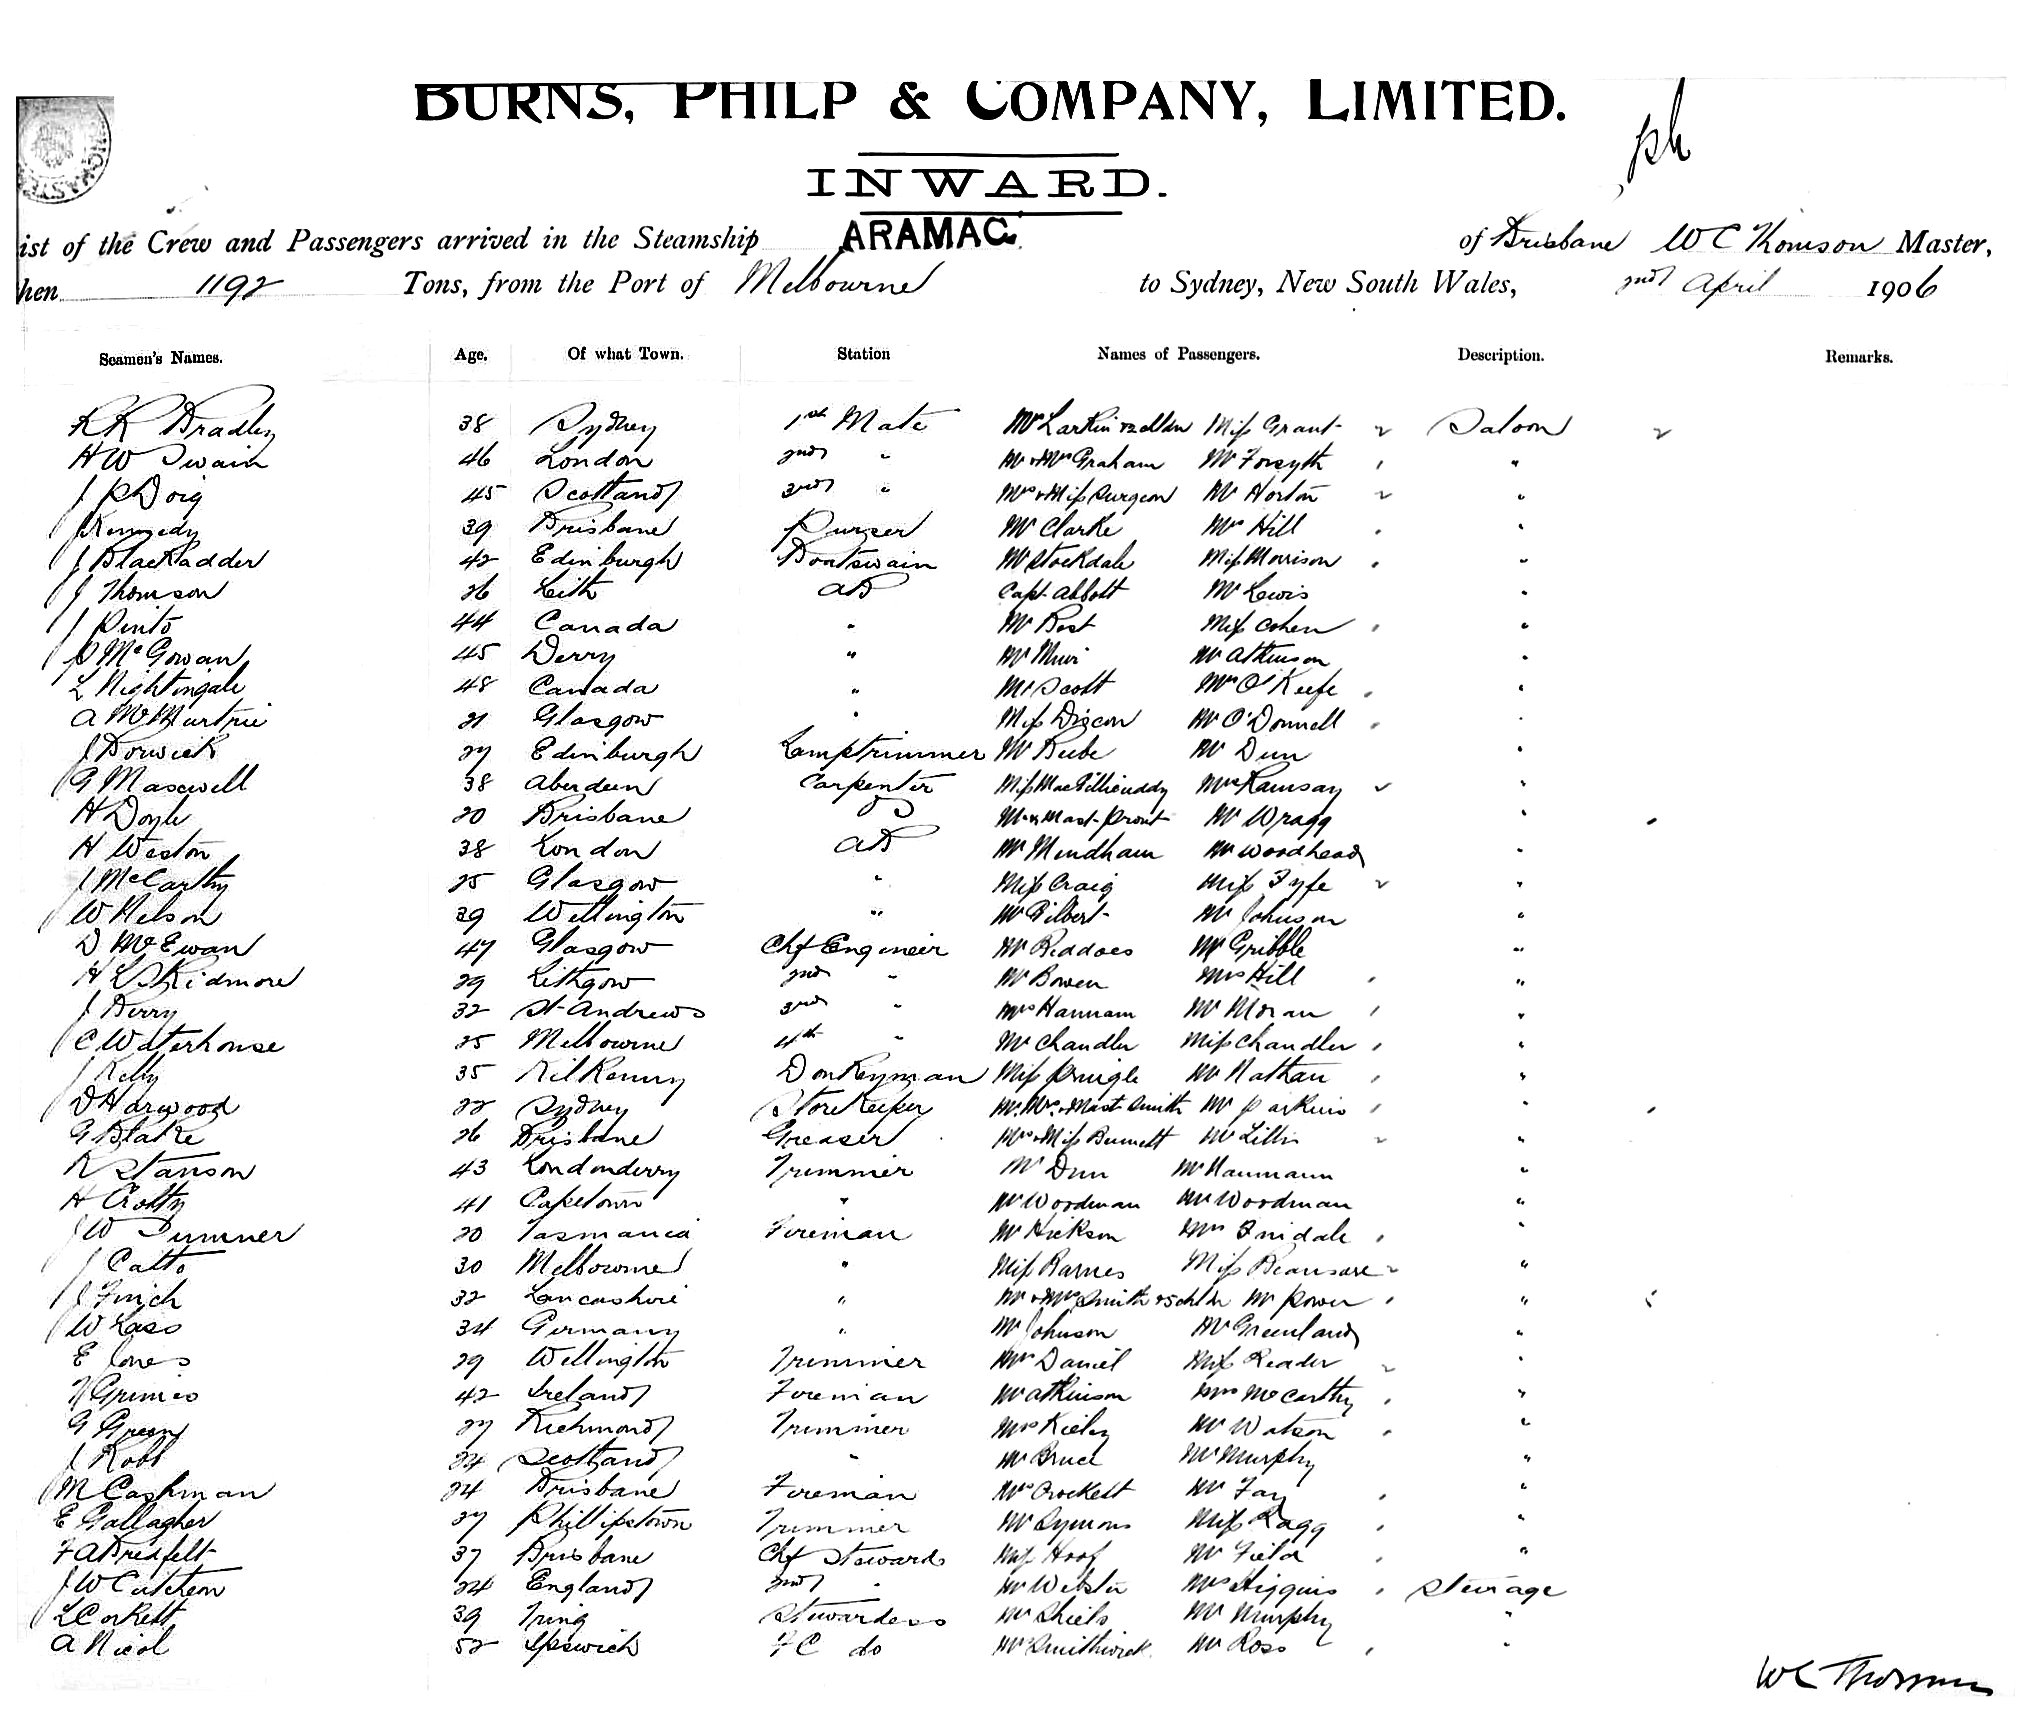 BURNS, PHILP & COMPANY, LIMITED.
ph
INWARD.
ist of the Crew and Passengers arrived in the Steamship ARAMAC. of Brisbane W C Thomson Master,
hen 1192 Tons, from the Port of Melbourne to Sydney, New South Wales, 2nd April 1906
Seamen's Names. Age. Of what Town. Station Names of Passengers. Description. Remarks.
R R Bradley 38 Sydney 1st Mate Mr Larkin Miss Grant Saloon
H W Swain 46 London 2nd " Mr & Mrs Graham Mr Forsyth "
J P Doig 45 Scotland 3rd " Mrs & Miss Surgeon Mr Horton "
J Kennedy 39 Brisbane Purser Mr Clarke Mr Hill "
J Blackadder 42 Edinburgh Boatswain Mr Stockdale Miss Morrison "
J Thomson 26 Leith AB Capt. Abbott Mr Lewis "
J Pinto 44 Canada " Mr Best Miss Cohen "
P McGowan 45 Derry " Mr Muir Mr Atkinson "
L Nightingale 48 Canada " Mr Scott Mrs O'Keefe "
A McMurtrie 21 Glasgow " Miss Dixon Mr O'Donnell "
J Borwick 27 Edinburgh Lamptrimmer Mr Beebe Mr Dun "
G Maxwell 38 Aberdeen Carpenter Miss MacGillicuddy Mrs Ramsay "
H Doyle 20 Brisbane OS Mr & Mast. Prout Mr Wragg "
H Weston 38 London AB Mr Mendham Mr Woodhead "
J McCarthy 25 Glasgow " Miss Craig Miss Fyfe "
W Nelson 39 Wellington " Mr Gilbert Mr Johnson "
D McEwan 47 Glasgow Chf Engineer Mr Beddoes Mr Gribble "
H L Skidmore 29 Lithgow 2nd " Mr Bowen Mrs Hill "
J Berry 32 St Andrews 3rd " Mrs Hannam Mr Moran "
C Waterhouse 25 Melbourne 4th " Mr Chandler Miss Chandler "
J Kelly 35 Kilkenny Donkeyman Miss Pringle Mr Nathan "
D Harwood 22 Sydney Storekeeper Mr. Mrs. & Mast Smith Mr Parkins "
G Blake 26 Brisbane Greaser Mrs & Miss Burnett Mr Lillis "
R Stanson 43 Londonderry Trimmer Mr Dun Mr Naumann "
H Crotty 41 Capetown " Mr Woodman Mr Woodman "
J W Sumner 20 Tasmania Fireman Mr Hickson Mrs "
J Catto 30 Melbourne " Miss Barnes Miss "
J Finch 32 Lancashire " Mr & Mrs Smith & 5 chldn Mr Power "
W Lass 34 Germany " Mr Johnson Mr Greenland "
E Jones 29 Wellington Trimmer Mrs Daniel Miss Reader "
T Grimes 42 Ireland Fireman Mr Atkinson Mrs McCarthy "
G Green 27 Richmond Trimmer Mrs Kieley Mr Watson "
J Robb 24 Scotland " Mr Bruce Mr Murphy "
M Cashman 24 Brisbane Fireman Mrs Crockett Mr Fay "
E Gallagher 27 Phillipstown Trimmer Mr Symons Miss Ragg "
F A Bredfelt 37 Brisbane Chf Steward Miss Hoof Mr Field "
J W Cutcheon 24 England 2nd " Mr Webster Mrs Higgins Steerage
L Corkett 39 Tring Stewardess Mr Shiels Mr Murphy "
A Nicol 52 Ipswich F C do Mr Smithwick Mr Ross "
W C Thomson